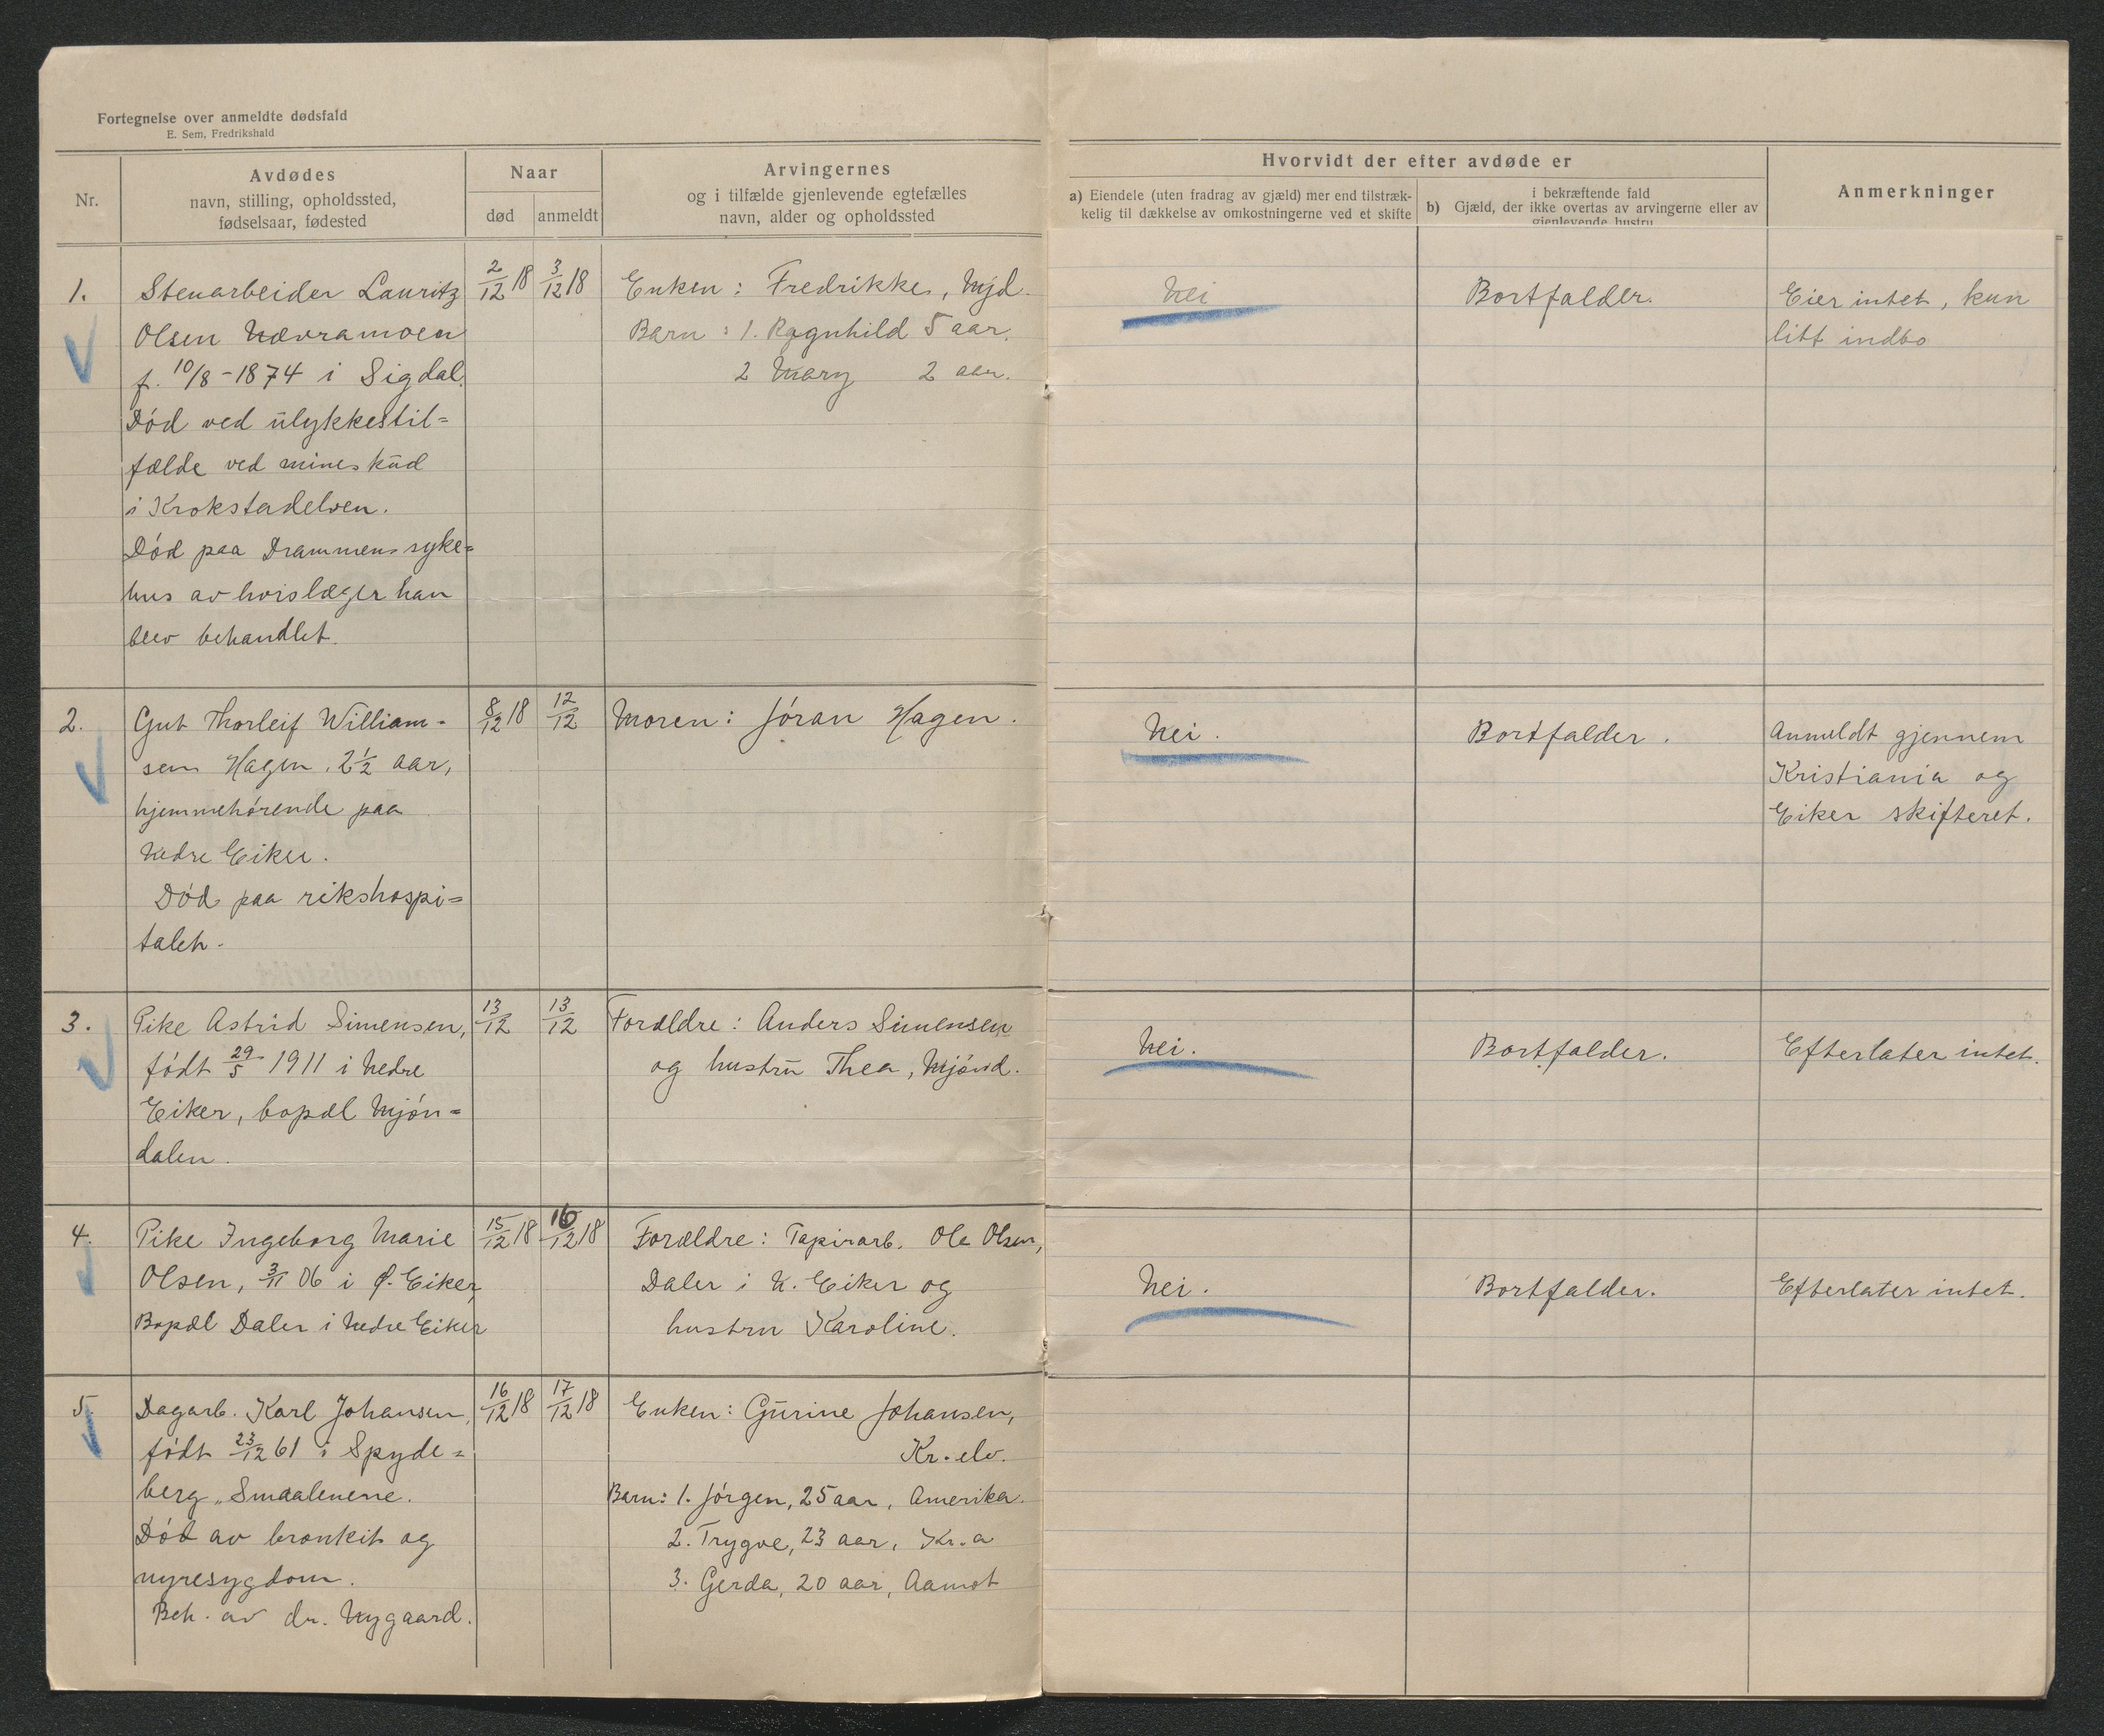 Fortegnelse over anmeldte dødsfald
E. Sem, Fredrikshald
Nr.
Avdødes
navn, stilling, opholdssted,
fødselsaar, fødested
Naar
død
anmeldt
Arvingernes
og i tilfælde gjenlevende egtefælles
navn, alder og opholdssted
Hvorvidt der efter avdøde er
a) Eiendele (uten fradrag av gjæld) mer end tilstræk-
kelig til dækkelse av omkostningerne ved et skifte
i bekræftende fald
b) Gjæld, der ikke overtas av arvingerne eller av
gjenlevende hustru
Anmerkninger
1.
Stenarbeider Lauritz
Olsen Nævramoen
f. 10/8-1874 i Sigdal.
Död ved ulykkestil=
fælde ved mineskud
i Krokstadelven.
Död paa Drammens syke=
hus av hvis læger han
blev behandlet.
2/12 18
3/12 18
Enken: Fredrikke, Mjd.
Barn: 1. Ragnhild 5 aar.
2 Mary 2 aar.
Nei
Bortfalder.
Eier intet, kun
litt indbo
2.
Gut Thorleif William-
sen Hagen, 2 1/2 aar,
hjemmehörende paa
Nedre Eiker.
Död paa rikshospi=
talet.
8/12 18
12/12
Moren: Jöran Hagen.
Nei.
Bortfalder.
Anmeldt gjennem
Kristiania og
Eiker skifteret.
3.
Pike Astrid Simensen,
födt 29/5 1911 i Nedre
Eiker, bopæl Mjön=
dalen.
13/12
13/12
Forældre: Anders Simensen
og hustru Thea, Mjönd.
Nei.
Bortfalder.
Efterlater intet.
4.
Pike Ingeborg Marie
Olsen, 3/11 06 i Ø. Eiker,
Bopæl Daler i Nedre Eiker
15/12 18
16/12 18
Forældre: Papirarb. Ole Olsen,
Daler i N. Eiker og
hustru Karoline.
Nei.
Bortfalder.
Efterlater intet.
5.
Dagarb. Karl Johansen,
födt 23/12 61 i Spyde=
berg, Smaalenene.
Död av bronkit og
nyresygdom.
Beh. av dr. Nygaard.
16/12 18
17/12 18
Enken: Gurine Johansen,
Kr. elv.
Barn: 1. Jörgen, 25 aar, Amerika.
2. Trygve, 23 aar, Kr.a
3. Gerda, 20 aar, Aamot